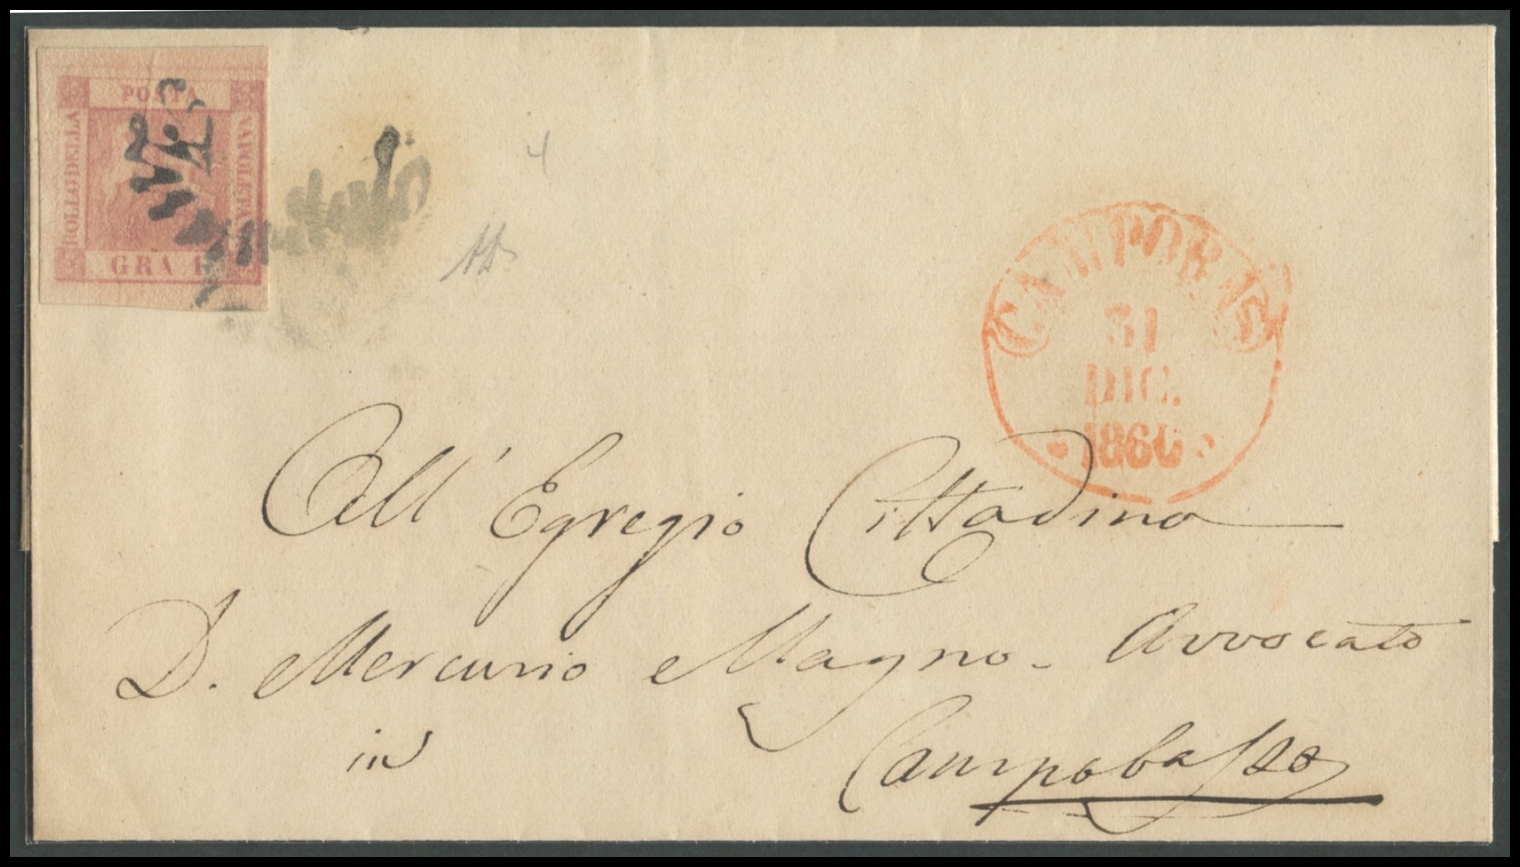 POSTA
BOLLO DELLA
NAPOLETA
GRA 1
4
CAMPOBAS
31
DIC.
1860
All' Egregio Cittadino
D. Mercurio Magno - Avvocato
in
Campobasso